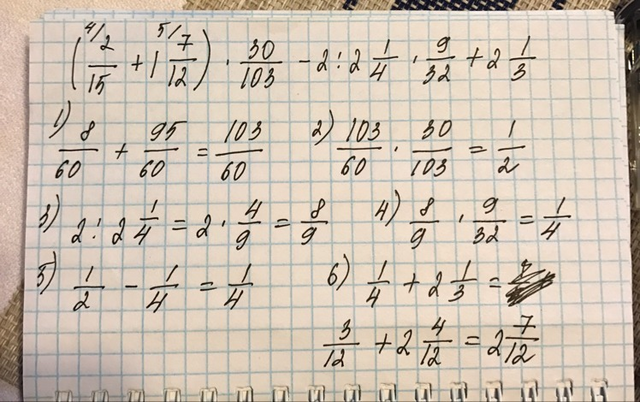 (⁴/2/15 + 1 ⁵/7/12) · 30/103 − 2 : 2 1/4 · 9/32 + 2 1/3
1) 8/60 + 95/60 = 103/60 2) 103/60 · 30/103 = 1/2
3) 2 : 2 1/4 = 2 · 4/9 = 8/9 4) 8/9 · 9/32 = 1/4
5) 1/2 − 1/4 = 1/4 6) 1/4 + 2 1/3 =
3/12 + 2 4/12 = 2 7/12